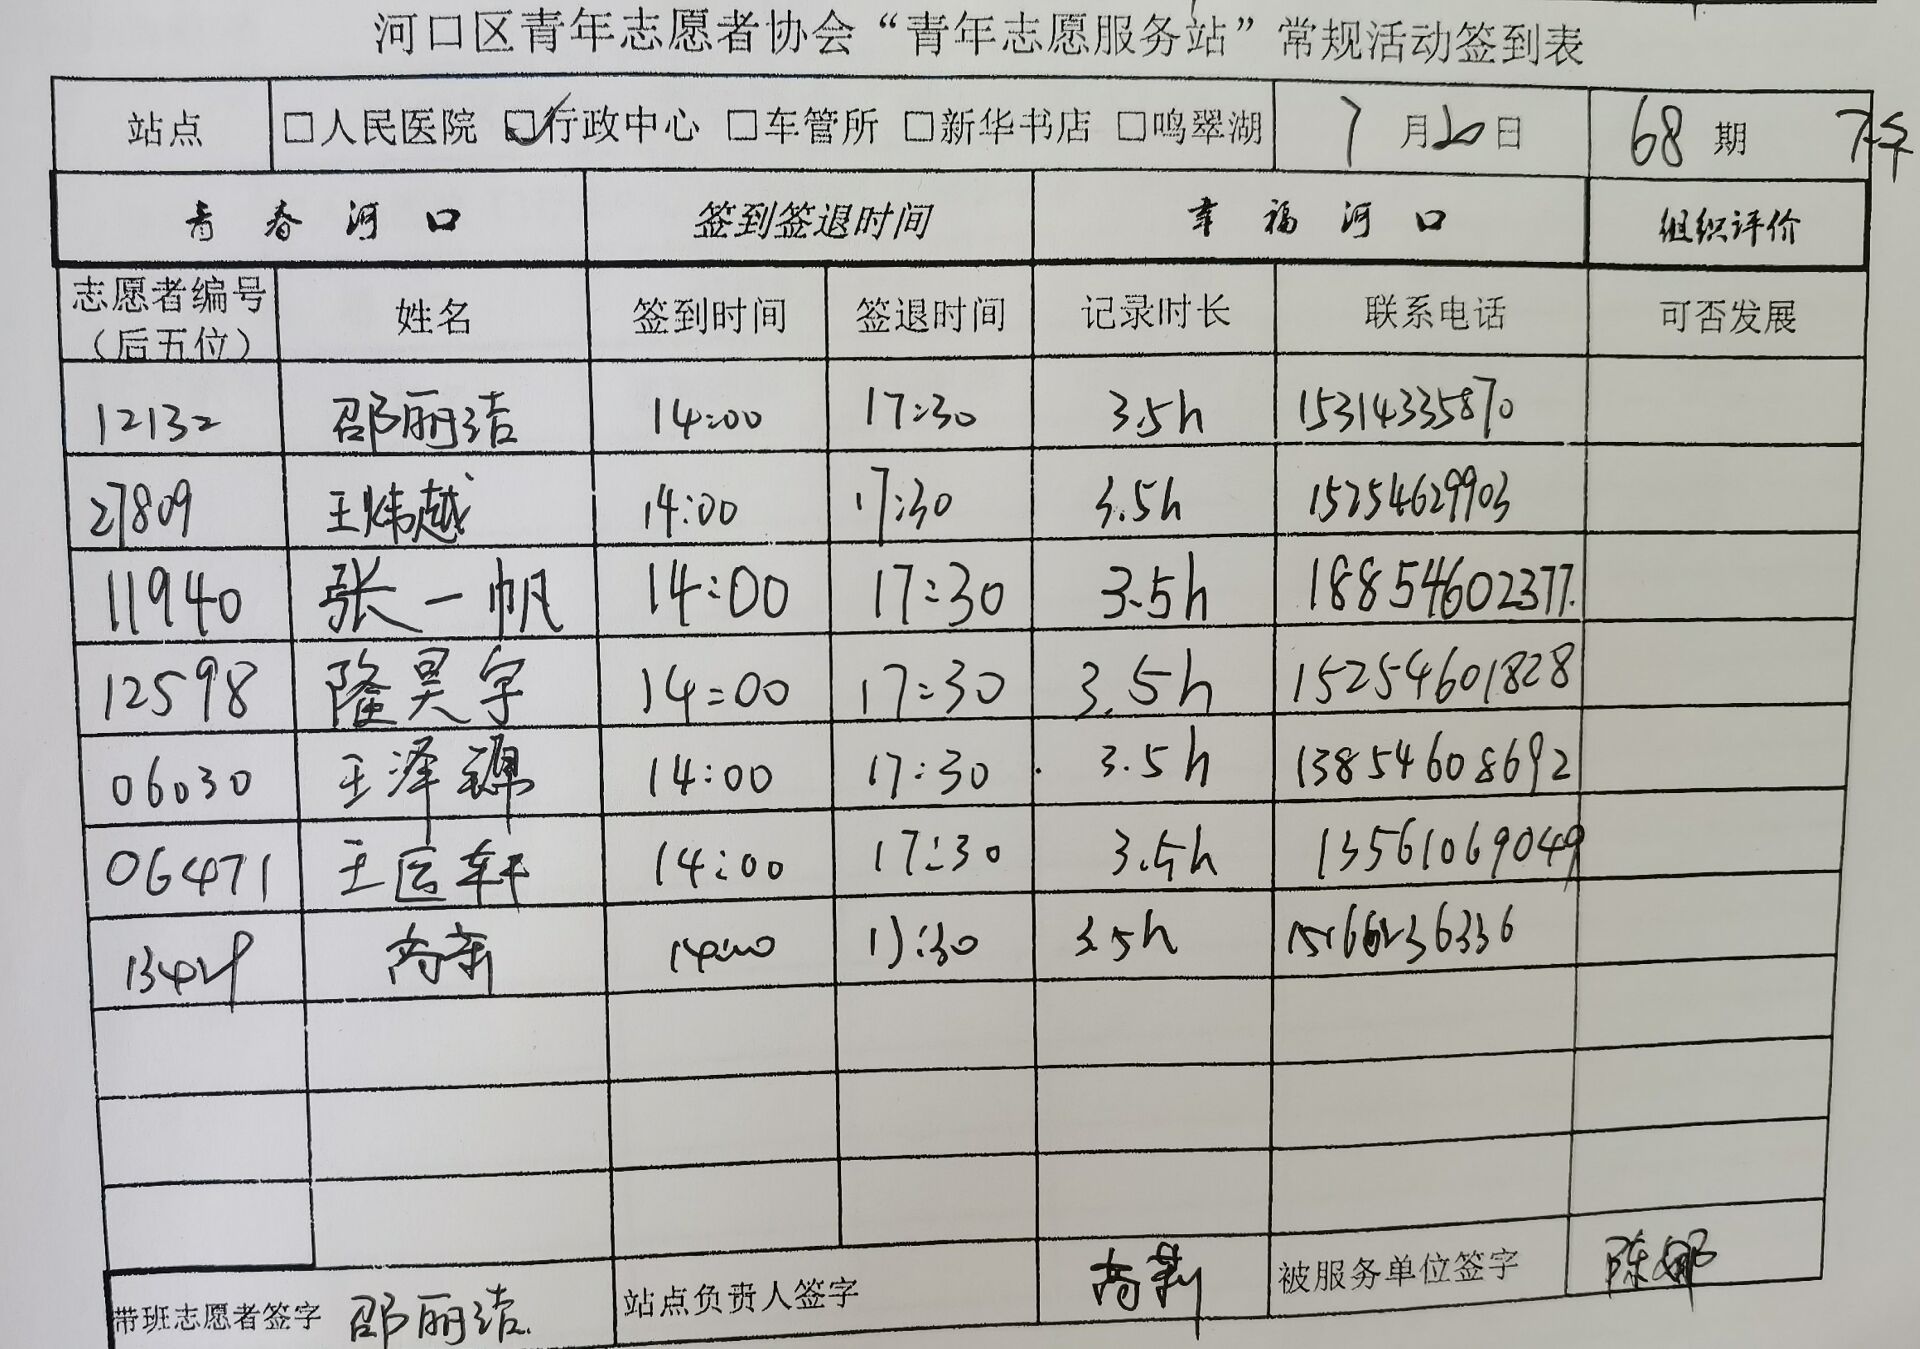 河口区青年志愿者协会“青年志愿服务站”常规活动签到表
站点 □人民医院 ☑行政中心 □车管所 □新华书店 □鸣翠湖 7月20日 68期 下午
青春河口 签到签退时间 幸福河口 组织评价
志愿者编号（后五位） 姓名 签到时间 签退时间 记录时长 联系电话 可否发展
12132 邵丽洁 14:00 17:30 3.5h 15314335870
27809 王炜越 14:00 17:30 3.5h 15254629903
11940 张一帆 14:00 17:30 3.5h 18854602377.
12598 隆昊宇 14:00 17:30 3.5h 15254601828
06030 王泽 14:00 17:30 3.5h 13854608692
06471 王医轩 14:00 17:30 3.5h 13561069049
13429 14:00 17:30 3.5h
带班志愿者签字 邵丽洁 站点负责人签字 被服务单位签字 陈娜